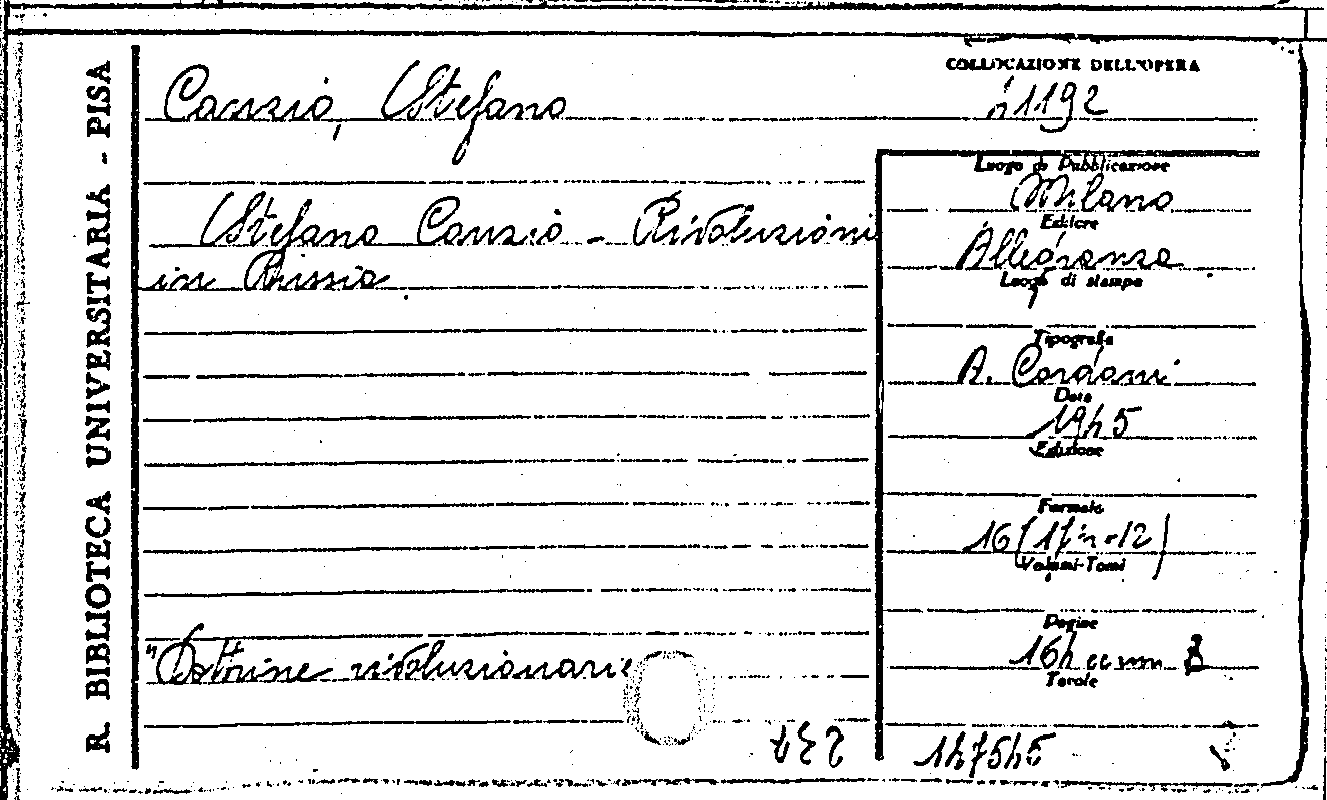 R. BIBLIOTECA UNIVERSITARIA - PISA
COLLOCAZIONE DELL'OPERA
Canzio, Stefano
1192
Luogo di Pubblicazione
Milano
Stefano Canzio - Rivoluzioni
in Russia
Editore
Allegranza
Luogo di stampa
Tipografia
A. Cordani
Data
1945
Edizione
Formato
16 (17
Volumi-Tomi
Pagine
164
Tavole
"Dottrine rivoluzionarie
237
147545